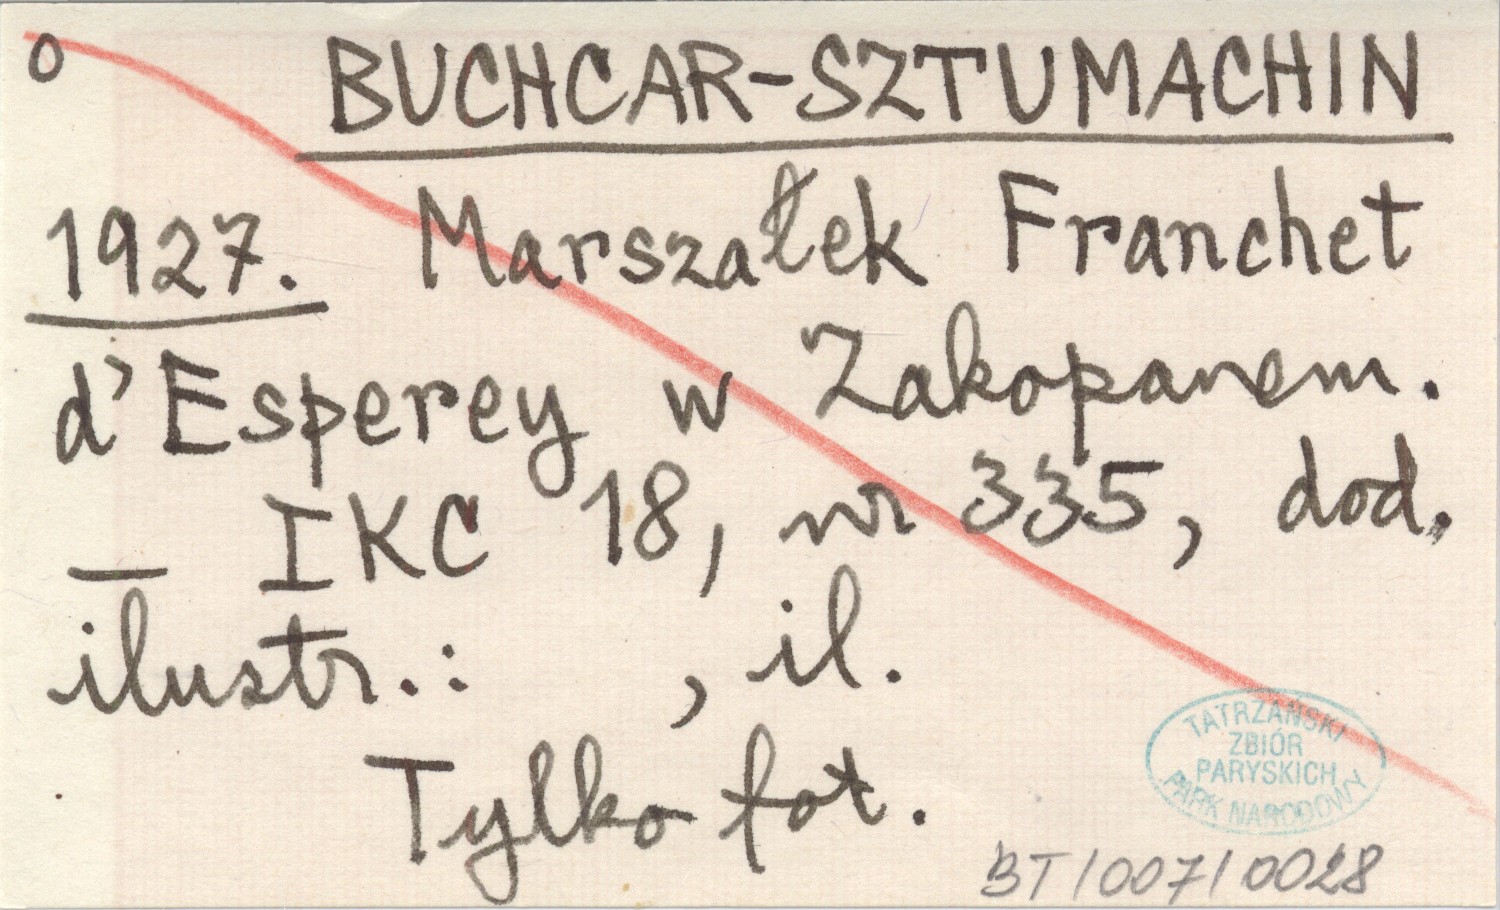 o BUCHCAR-SZTUMACHIN
1927. Marszałek Franchet
d'Esperey w Zakopanem.
— IKC 18, nr 335, dod.
ilustr.: , il.
Tylko fot.
TATRZAŃSKI
ZBIÓR
PARYSKICH
PARK NARODOWY
BT/007/0028